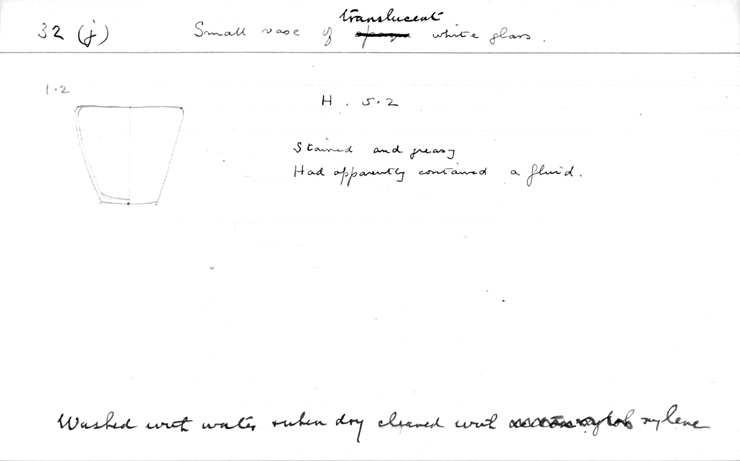 32 (j) Small vase of translucent white glass.
1.2
H. 5.2
Stained and greasy
Had apparently contained a fluid.
Washed with water when dry cleaned with xylene